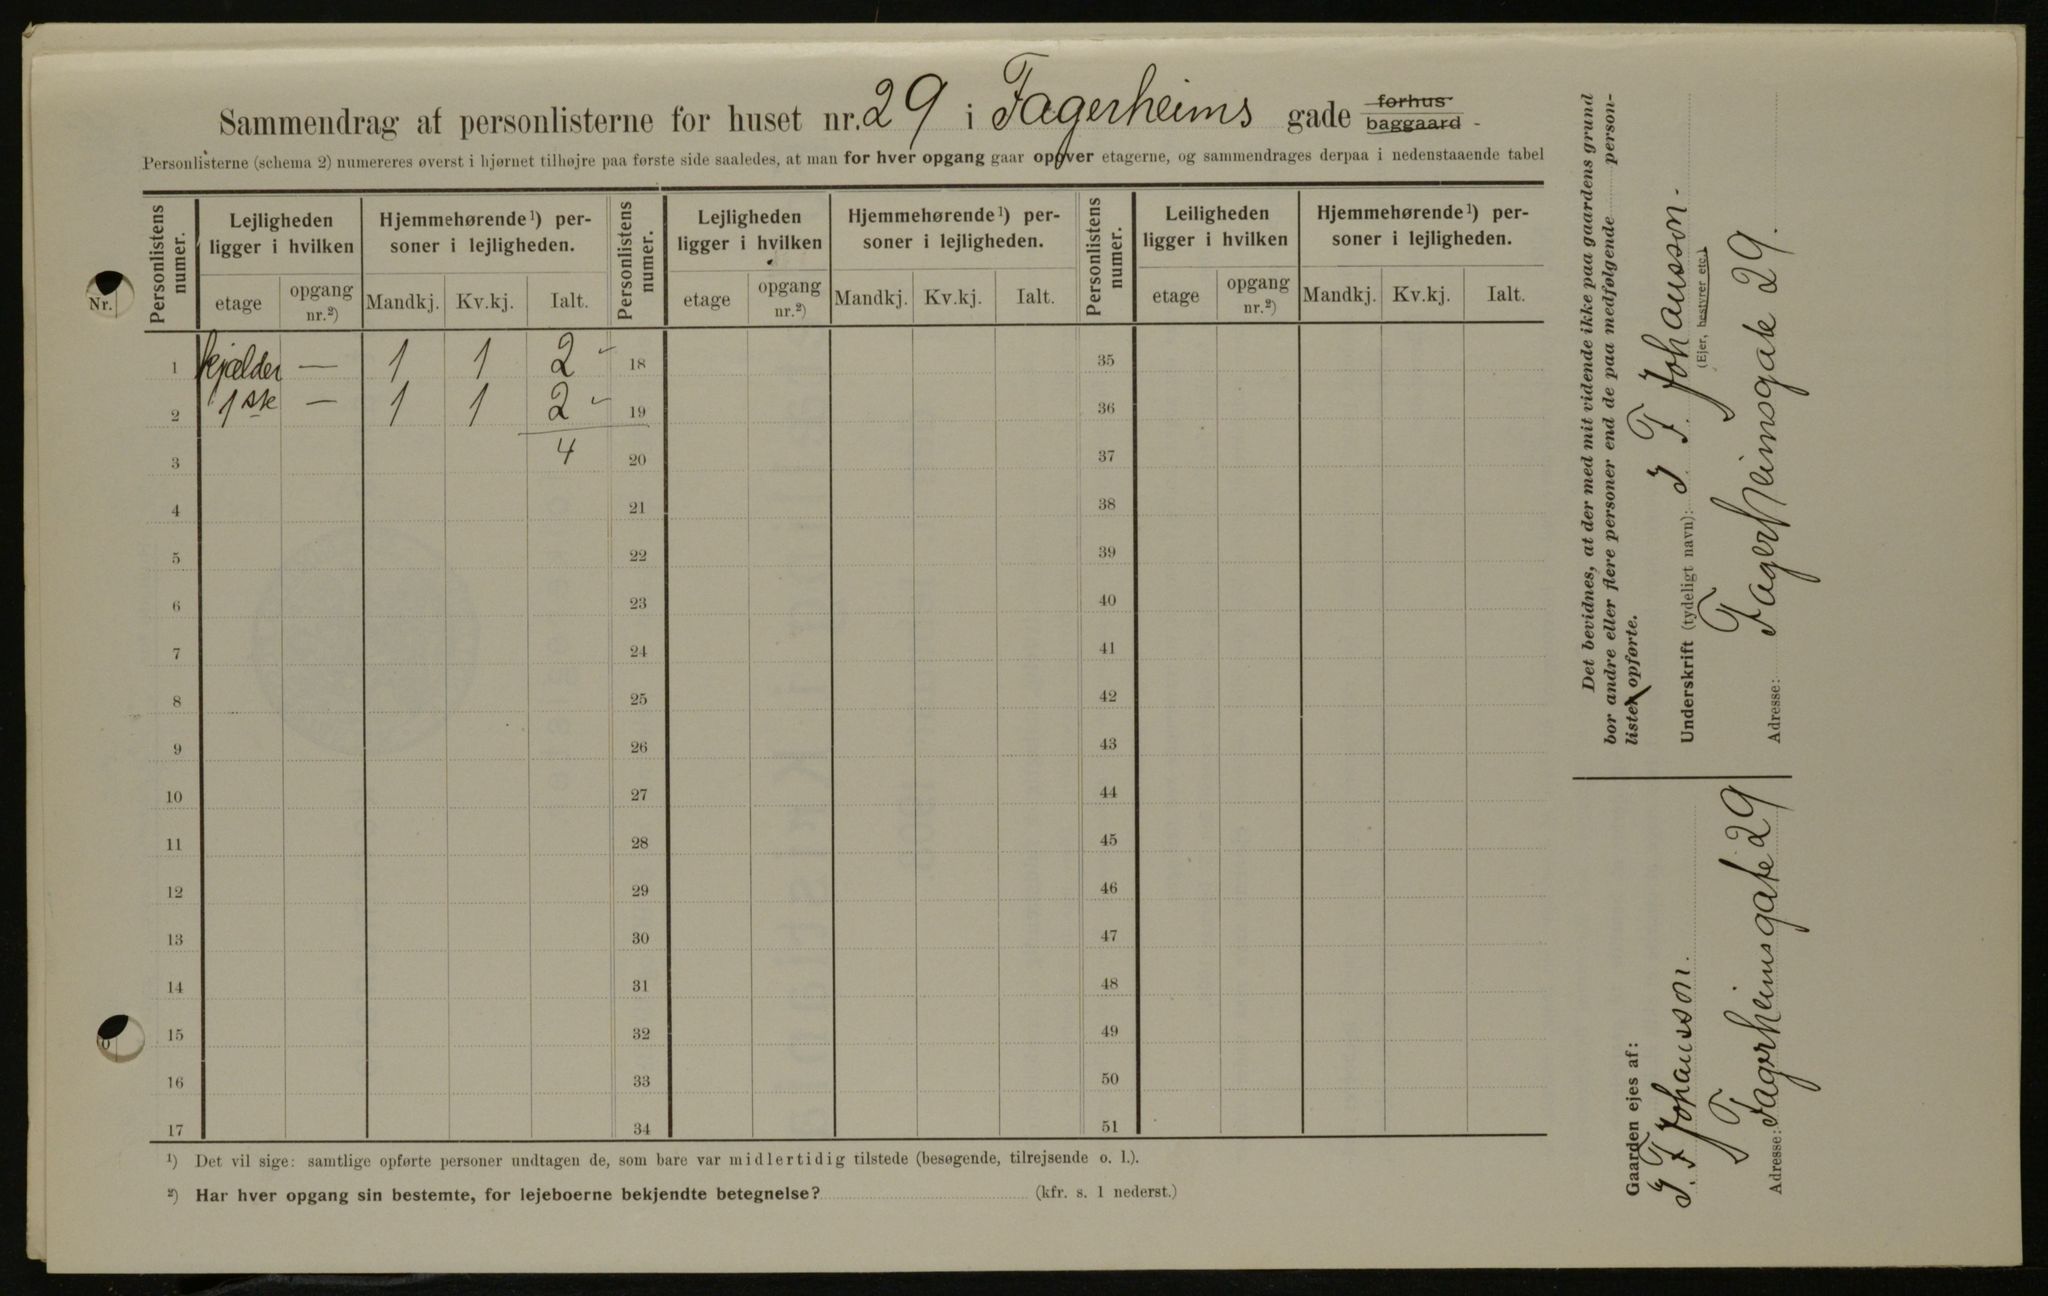 Sammendrag af personlisterne for huset nr. 29 i Fagerheims gade forhus baggaard
Personlisterne (schema 2) numereres øverst i hjørnet tilhøjre paa første side saaledes, at man for hver opgang gaar opover etagerne, og sammendrages derpaa i nedenstaaende tabel
Personlistens numer. Lejligheden ligger i hvilken Hjemmehørende¹) personer i lejligheden. Personlistens numer. Lejligheden ligger i hvilken Hjemmehørende¹) personer i lejligheden. Personlistens numer. Leiligheden ligger i hvilken Hjemmehørende¹) personer i lejligheden.
etage opgang nr.²) Mandkj. Kv.kj. Ialt. etage opgang nr.²) Mandkj. Kv.kj. Ialt. etage opgang nr.²) Mandkj. Kv.kj. Ialt.
Nr.
1 kjælder — 1 1 2 18 35
2 1ste — 1 1 2 19 36
3 4 20 37
4 21 38
5 22 39
6 23 40
7 24 41
8 25 42
9 26 43
10 27 44
11 28 45
12 29 46
13 30 47
14 31 48
15 32 49
16 33 50
17 34 51
¹) Det vil sige: samtlige opførte personer undtagen de, som bare var midlertidig tilstede (besøgende, tilrejsende o. l.).
²) Har hver opgang sin bestemte, for lejeboerne bekjendte betegnelse? (kfr. s. 1 nederst.)
Det bevidnes, at der med mit vidende ikke paa gaardens grund
bor andre eller flere personer end de paa medfølgende person-
lister opførte.
Underskrift (tydeligt navn): J. F. Johansson.
(Ejer, bestyrer etc.)
Adresse: Fagerheimsgate 29.
Gaarden ejes af:
J. F. Johansson.
Adresse: Fagerheimsgate 29